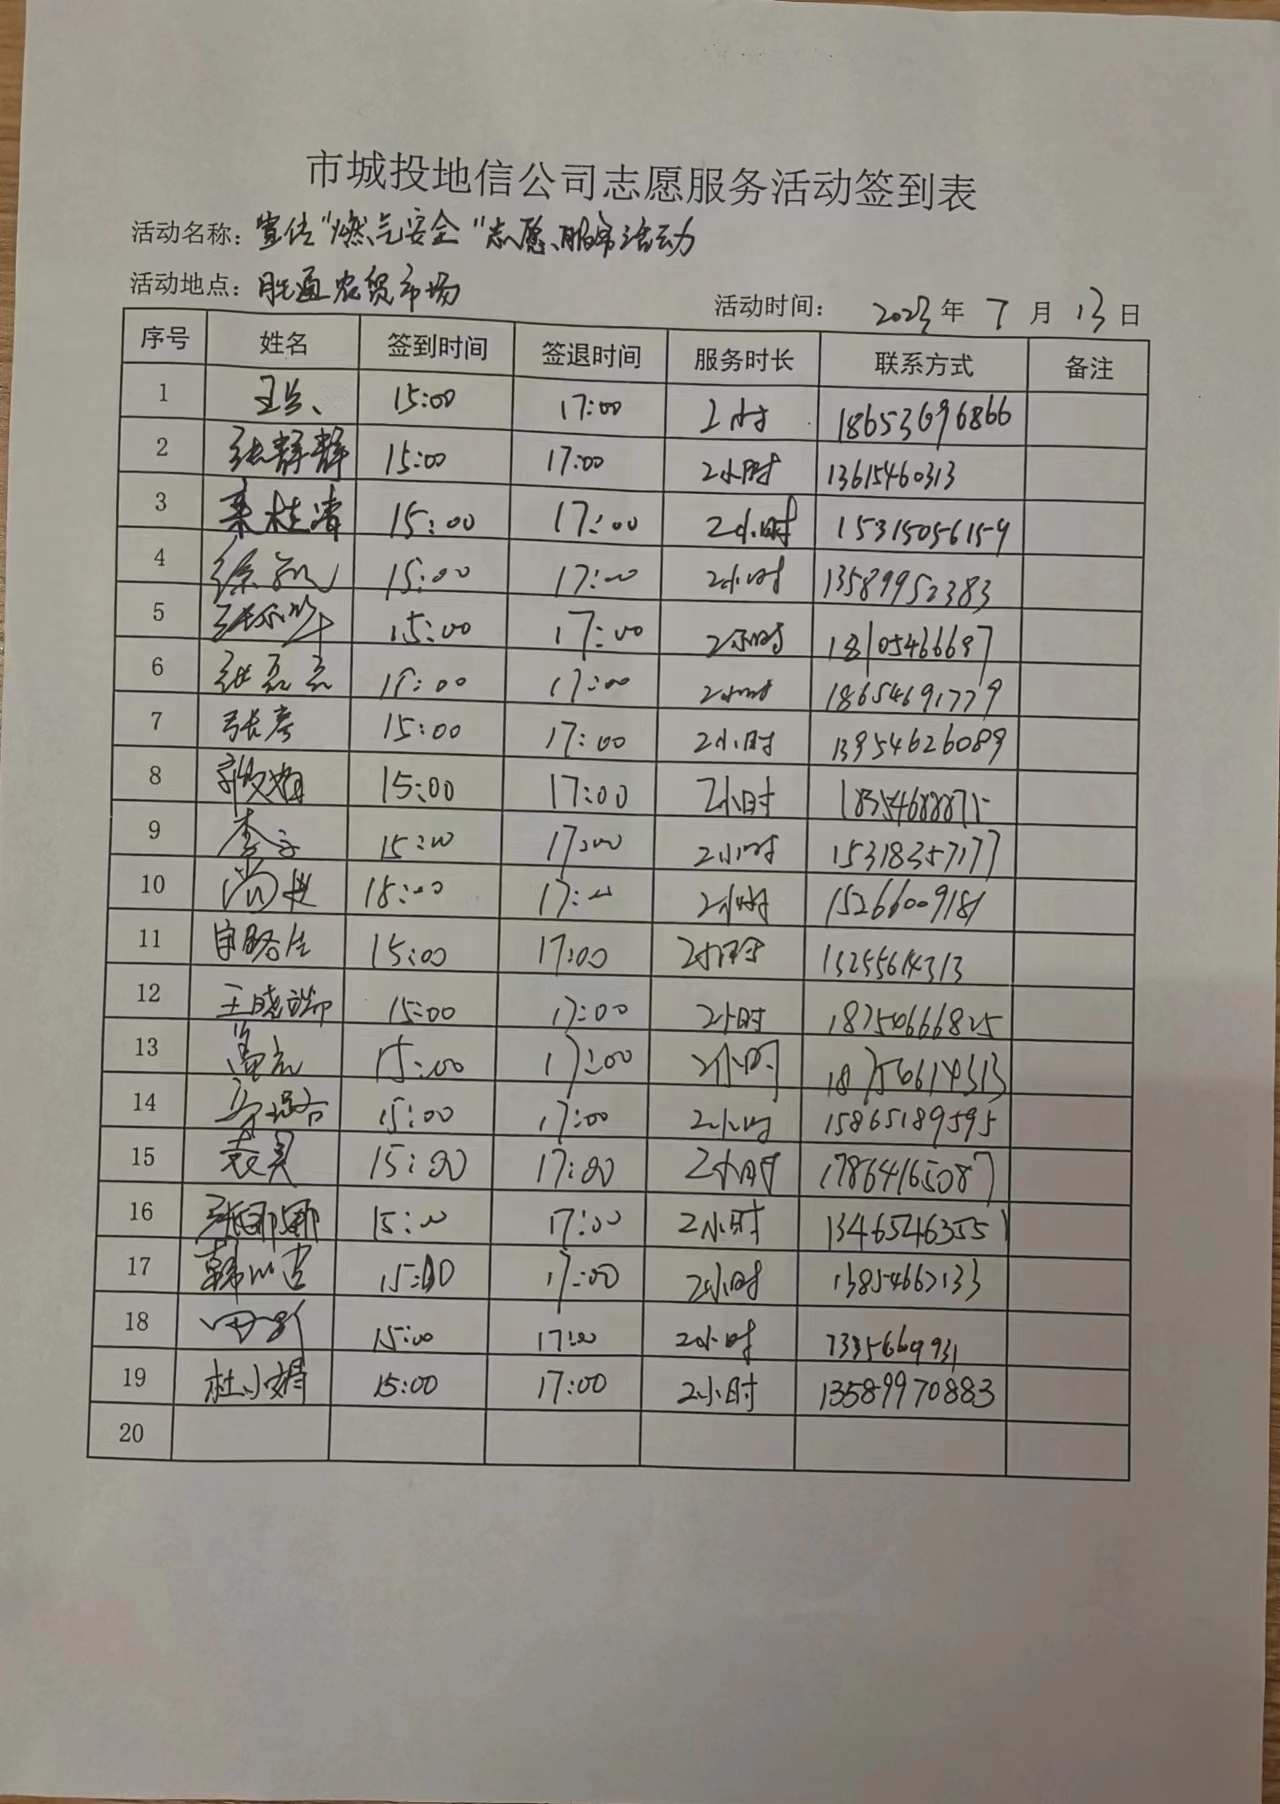 市城投地信公司志愿服务活动签到表
活动名称：宣传“燃气安全”志愿服务活动
活动地点：胜通农贸市场 活动时间： 2023年 7 月 13 日
序号 姓名 签到时间 签退时间 服务时长 联系方式 备注
1 15:00 17:00 2小时 18653696866
2 张静静 15:00 17:00 2小时 13615460313
3 15:00 17:00 2小时 15315056159
4 15:00 17:00 2小时 13589952383
5 15:00 17:00 2小时 18105466697
6 张磊磊 15:00 17:00 2小时 18654691779
7 张彦 15:00 17:00 2小时 13954626089
8 15:00 17:00 2小时 18354688871
9 15:00 17:00 2小时 15318357177
10 15:00 17:00 2小时 15266009181
11 15:00 17:00 2小时 13255614313
12 王晓瑞 15:00 17:00 2小时 18750666825
13 15:00 17:00 2小时
14 15:00 17:00 2小时 15865189595
15 袁昊 15:00 17:00 2小时 17864165087
16 张娜娜 15:00 17:00 2小时 13465463551
17 15:00 17:00 2小时 13854662133
18 15:00 17:00 2小时
19 杜小娟 15:00 17:00 2小时 13589970883
20